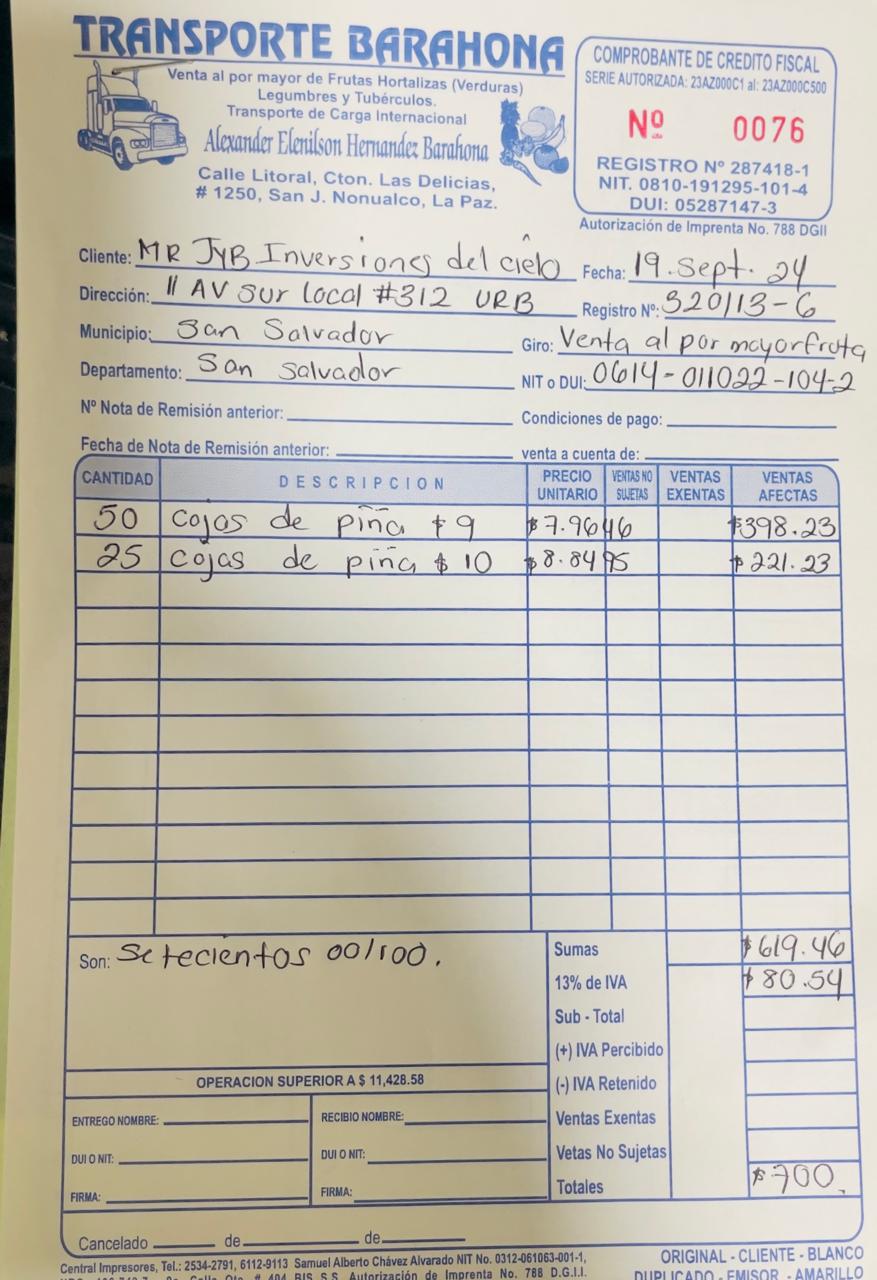 TRANSPORTE BARAHONA
Venta al por mayor de Frutas Hortalizas (Verduras)
Legumbres y Tubérculos.
Transporte de Carga Internacional
Alexander Elenilson Hernandez Barahona
Calle Litoral, Cton. Las Delicias,
# 1250, San J. Nonualco, La Paz.
COMPROBANTE DE CREDITO FISCAL
SERIE AUTORIZADA: 23AZ000C1 al: 23AZ000C500
Nº 0076
REGISTRO Nº 287418-1
NIT. 0810-191295-101-4
DUI: 05287147-3
Autorización de Imprenta No. 788 DGII
Cliente: MR JyB Inversiones del cielo Fecha: 19. Sept. 24
Dirección: 11 AV sur local #312 URB Registro Nº: 320113-6
Municipio: San Salvador Giro: Venta al por mayor fruta
Departamento: San Salvador NIT o DUI: 0614-011022-104-2
Nº Nota de Remisión anterior: Condiciones de pago:
Fecha de Nota de Remisión anterior: venta a cuenta de:
CANTIDAD DESCRIPCION PRECIO UNITARIO VENTAS NO SUJETAS VENTAS EXENTAS VENTAS AFECTAS
50 cajas de piña $ 9 $7.9646 $398.23
25 cajas de piña $ 10 $8.8495 $221.23
Son: Setecientos 00/100. Sumas $619.46
13% de IVA $80.54
Sub - Total
(+) IVA Percibido
OPERACION SUPERIOR A $ 11,428.58 (-) IVA Retenido
ENTREGO NOMBRE: RECIBIO NOMBRE: Ventas Exentas
DUI O NIT: DUI O NIT: Vetas No Sujetas
FIRMA: FIRMA: Totales $700.
Cancelado de de
Central Impresores, Tel.: 2534-2791, 6112-9113 Samuel Alberto Chávez Alvarado NIT No. 0312-061063-001-1, ORIGINAL - CLIENTE - BLANCO
Calle Ote. # 404 BIS, S.S. Autorización de Imprenta No. 788 D.G.I.I. DUPLICADO - EMISOR - AMARILLO